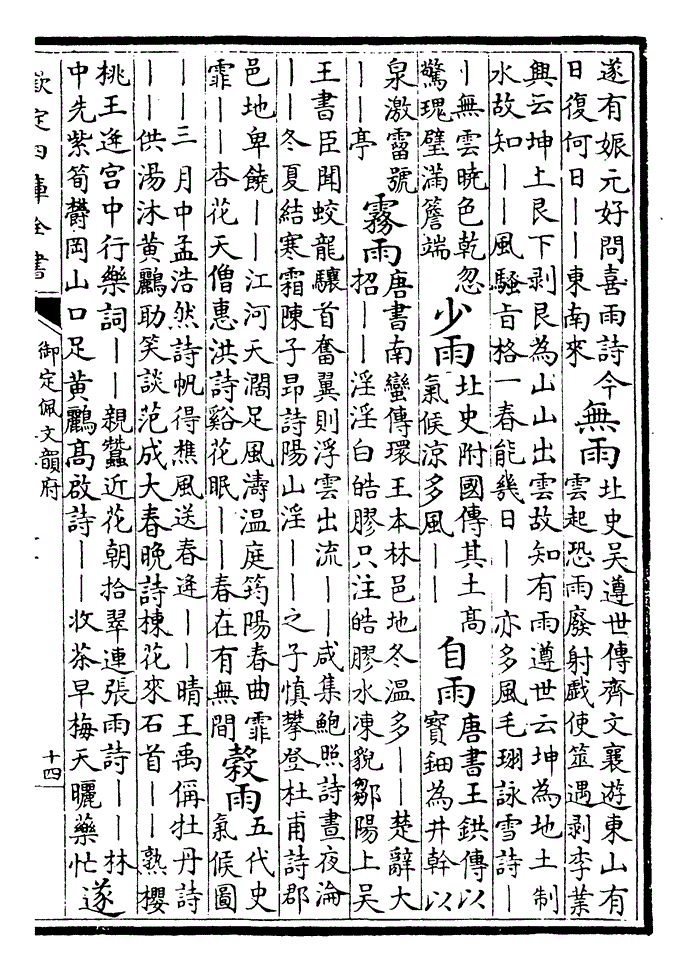 遂有娠元好問喜雨詩今
日復何日丨丨東南來
無雨
北史吳遵世傳齊文襄遊東山有
雲起恐雨廢射戲使筮遇剥李業
興云坤上艮下剥艮為山山出雲故知有雨遵世云坤為地土制
水故知丨丨風騷㫖格一春能幾日丨丨亦多風毛珝詠雪詩丨
丨無雲曉色乾忽
驚瑰璧滿簷端
少雨
北史附國傳其土高
氣候涼多風丨丨
自雨
唐書王鉷傳以
寶鈿為井幹以
泉激霤號
丨丨亭
霧雨
唐書南蠻傳環王本林邑地冬溫多丨丨楚辭大
招丨丨淫淫白皓膠只注皓膠水凍貌鄒陽上吳
王書臣聞蛟龍驤首奮翼則浮雲出流丨丨咸集鮑照詩晝夜淪
丨丨冬夏結寒霜陳子昂詩陽山淫丨丨之子慎攀登杜甫詩郡
邑地卑饒丨丨江河天濶足風濤溫庭筠陽春曲霏
霏丨丨杏花天僧惠洪詩谿花眠丨丨春在有無間
穀雨
五代史
氣候圖
丨丨三月中孟浩然詩帆得樵風送春逢丨丨晴王禹偁牡丹詩
丨丨供湯沐黃鸝助笑談范成大春晚詩楝花來石首丨丨熟櫻
桃王逢宮中行樂詞丨丨親蠶近花朝拾翠連張雨詩丨丨林
中先紫筍欝岡山口足黃鸝高啟詩丨丨收茶早梅天曬藥忙
遂
欽定四庫全書
御定佩文韻府
十四